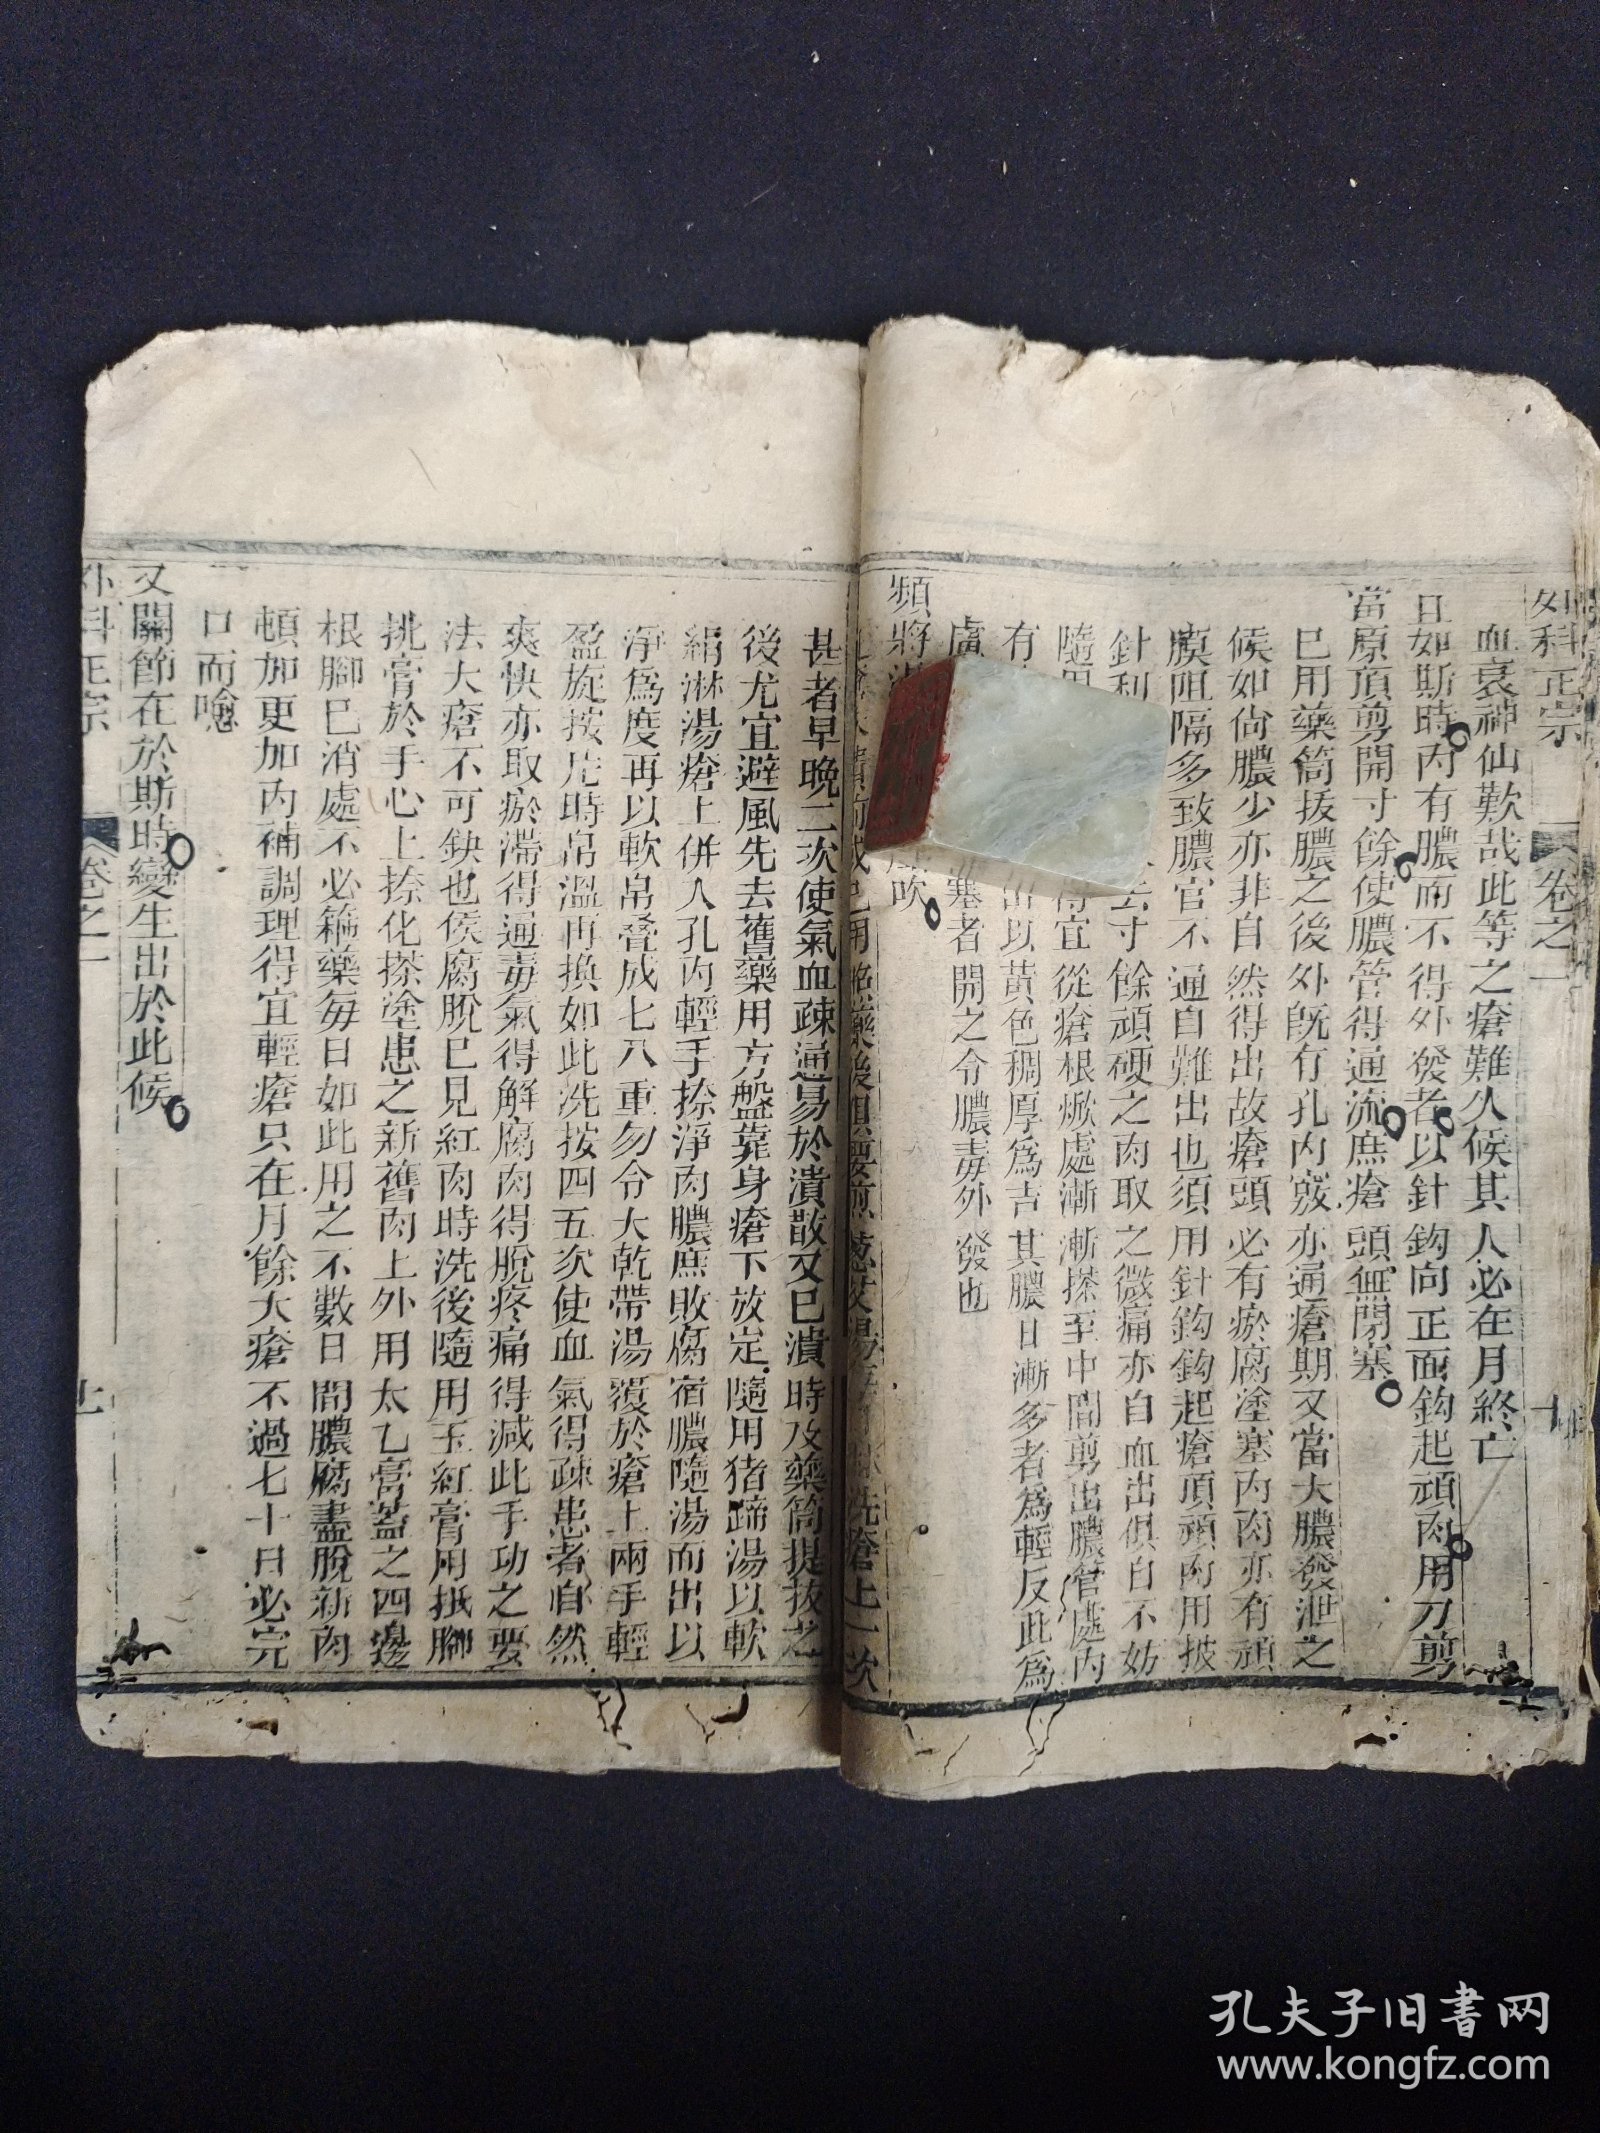 外科正宗 卷之一
血衰神仙歎哉此等之瘡難久候其人必在月終亡
且如斯時內有膿而不得外發者以針鈎向正面鈎起頑肉用刀剪
當原頂剪開寸餘使膿管得通流庶瘡頭無閉塞
已用藥筒拔膿之後外既有孔內竅亦通瘡期又當大膿發泄之
候如尙膿少亦非自然得出故瘡頭必有瘀腐塗塞內肉亦有頑
膜阻隔多致膿官不通自難出也須用針鈎鈎起瘡頂頑肉用披
針利 去寸餘頑硬之肉取之微痛亦自血出俱自不妨
隨用 得宜從瘡根焮處漸漸搽至中間剪出膿管處內
有 出以黃色稠厚爲吉其膿日漸多者爲輕反此爲
慮 塞者開之令膿毒外發也
頻將湯 風吹
藥後俱要煎葱艾湯 洗瘡上一次
甚者早晚二次使氣血疎通易於潰散又已潰時及藥筒提拔之
後尤宜避風先去舊藥用方盤靠身瘡下放定隨用猪蹄湯以軟
絹淋湯瘡上併入孔內輕手捺淨內膿庶敗腐宿膿隨湯而出以
淨爲度再以軟帛疊成七八重勿令大乾帶湯覆於瘡上兩手輕
盈旋按片時帛溫再換如此洗按四五次使血氣得疎患者自然
爽快亦取瘀滯得通毒氣得解腐肉得脫疼痛得減此手功之要
法大瘡不可缺也侯腐脫已見紅肉時洗後隨用玉紅膏用抿脚
挑膏於手心上捺化搽塗患之新舊肉上外用太乙膏蓋之四邊
根脚已消處不必箍藥每日如此用之不數日間膿腐盡脫新肉
頓加更加內補調理得宜輕瘡只在月餘大瘡不過七十日必完
口而喻
又關節在於斯時變生出於此候
外科正宗 卷之一 上
孔夫子旧书网
www.kongfz.com